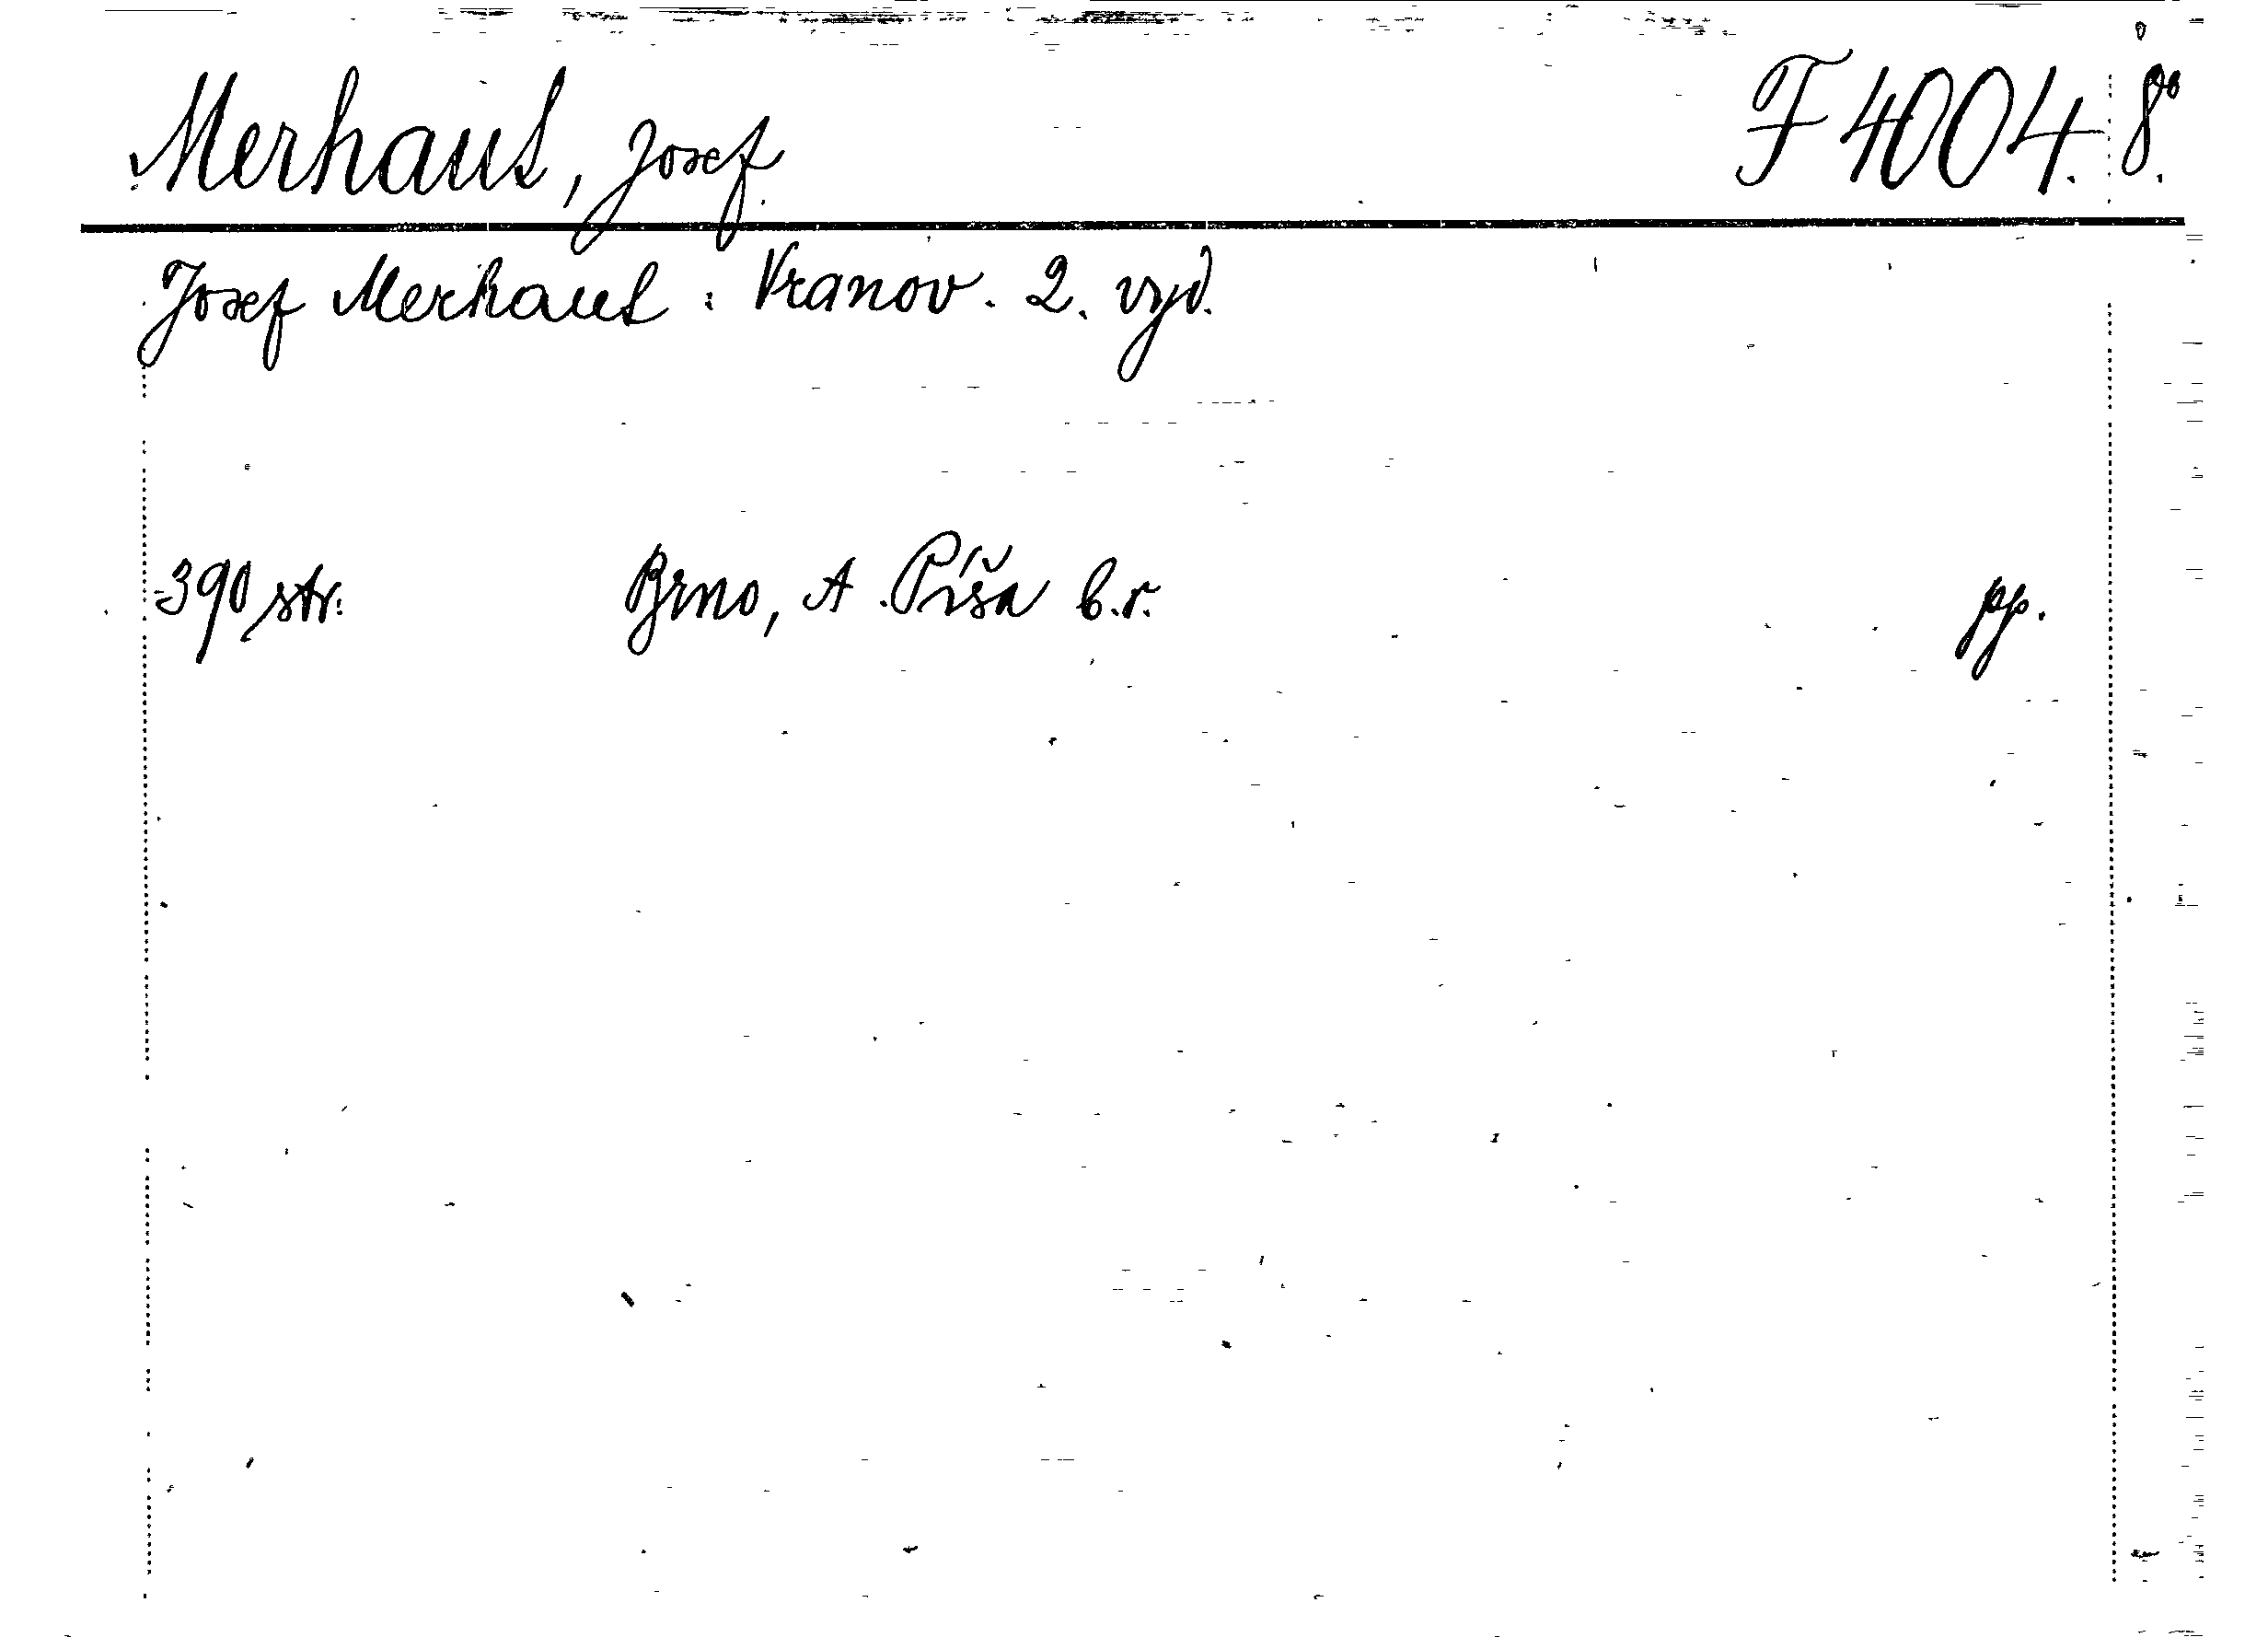 Merhaut, Josef. F 4004. 8°.
Josef Merhaut: Vranov. 2. vyd.
390 str. Brno, A. Píša b.r. pp.